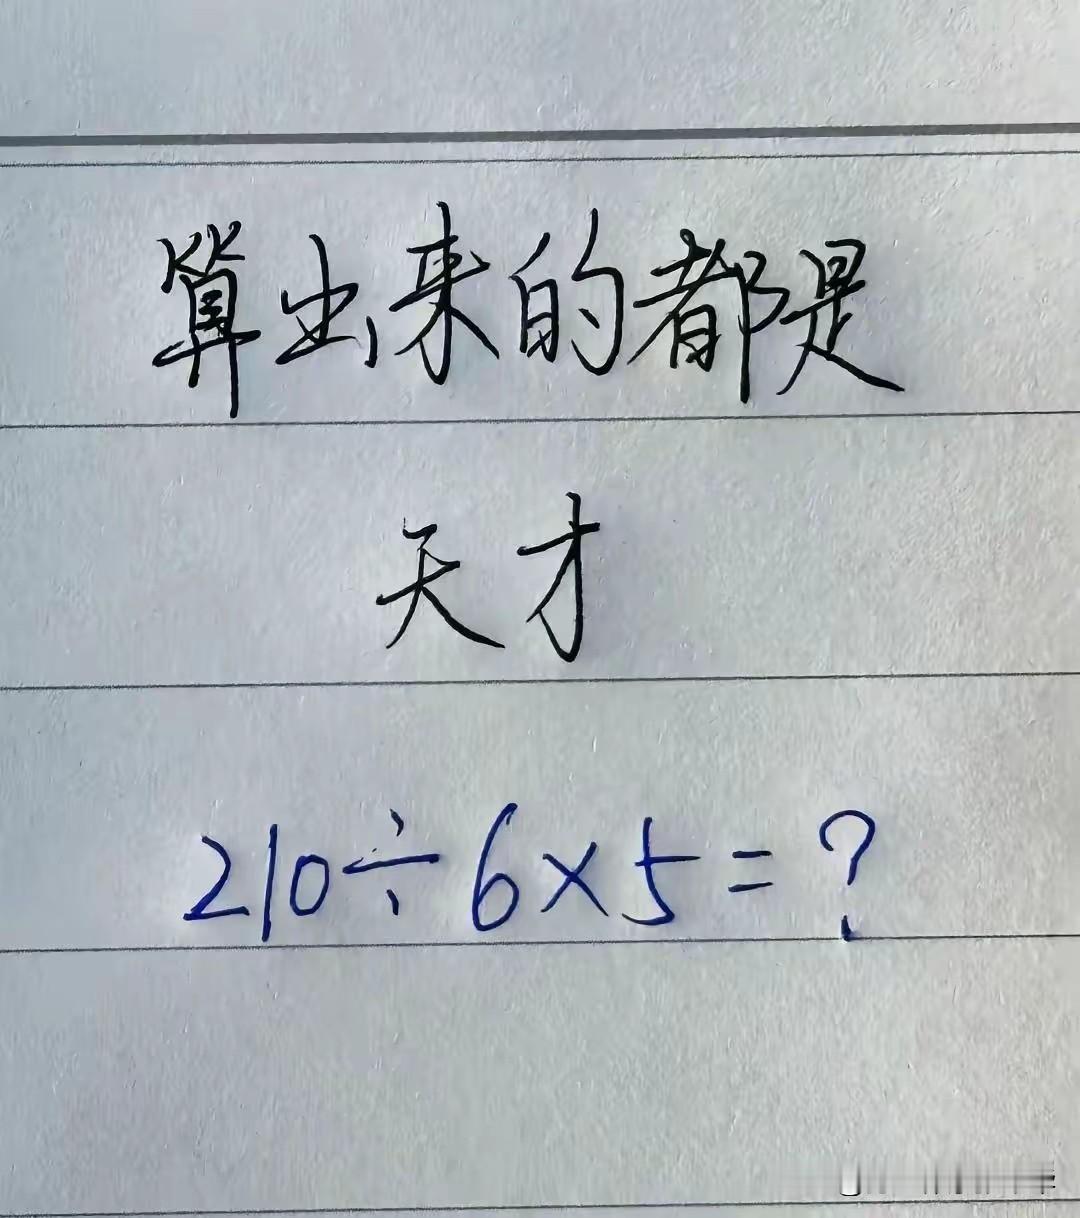 算出来的都是
天才
210÷6×5=?